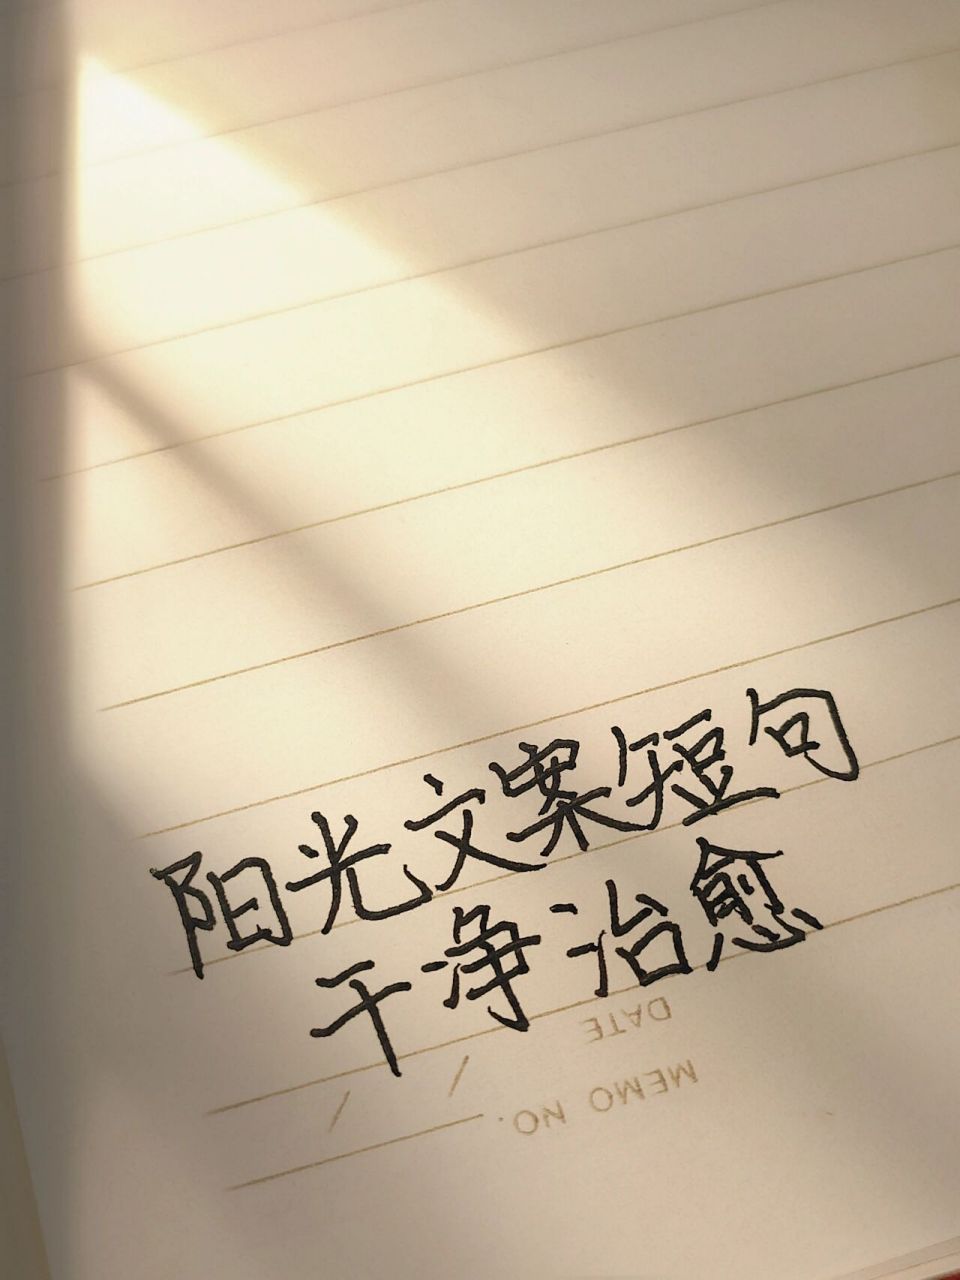 阳光文案短句
干净治愈
DATE
MEMO NO.
/ /